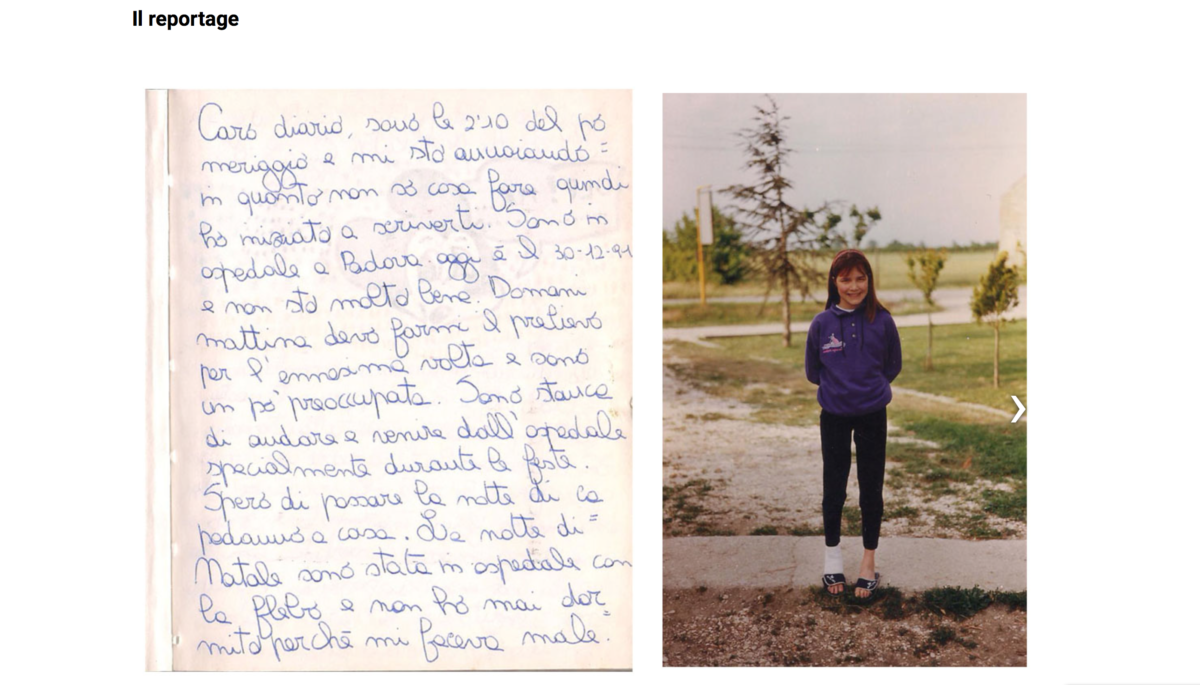 Il reportage
Caro diario, sono le 2'10 del po
meriggio e mi sto annoiando =
in quanto non so cosa fare quindi
ho iniziato a scriverti. Sono in
ospedale a Padova oggi è il 30-12-91
e non sto molto bene. Domani
mattina devo farmi il prelievo
per l'ennesima volta e sono
un po' preoccupata. Sono stanca
di andare e venire dall'ospedale
specialmente durante le feste.
Spero di passare la notte di ca
podanno a casa. La notte di =
Natale sono stata in ospedale con
la flebo e non ho mai dor
=
mito perchè mi faceva male.